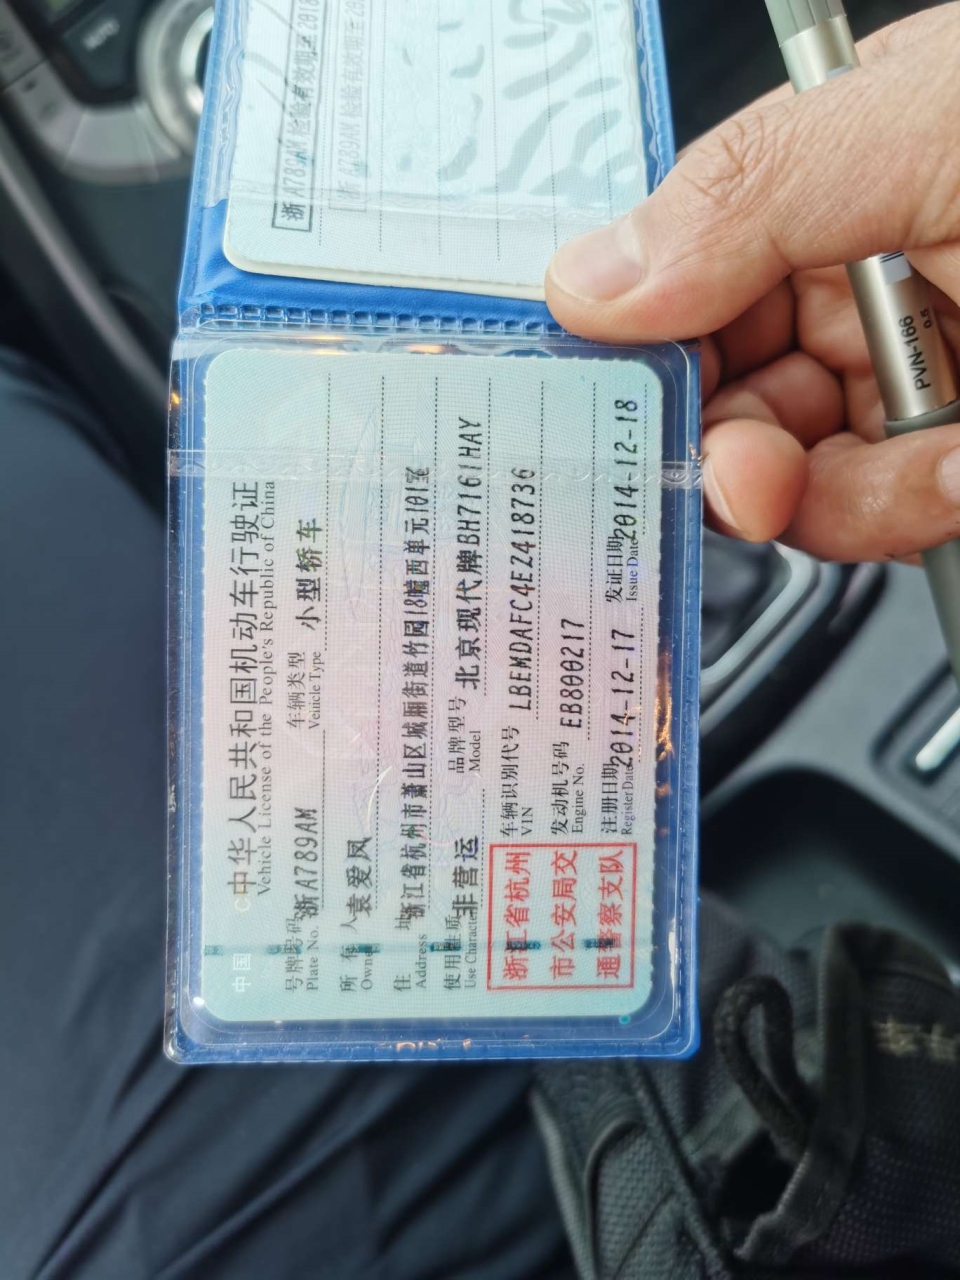 中华人民共和国机动车行驶证
Vehicle License of the People's Republic of China
号牌号码 浙A789AM 车辆类型 小型轿车
Plate No. Vehicle Type
所有人 袁爱凤
Owner
住址 浙江省杭州市萧山区城厢街道竹园18幢西单元101室
Address
使用性质 非营运 品牌型号 北京现代牌BH7161HAY
Use Character Model
浙江省杭州
市公安局交
通警察支队
车辆识别代号 LBEMDAFC4EZ418736
VIN
发动机号码 EB800217
Engine No.
注册日期 2014-12-17 发证日期 2014-12-18
Register Date Issue Date
中国
浙A789AM 检验有效期至2018
浙A789AM 检验有效期至20
PVN-166
0.5